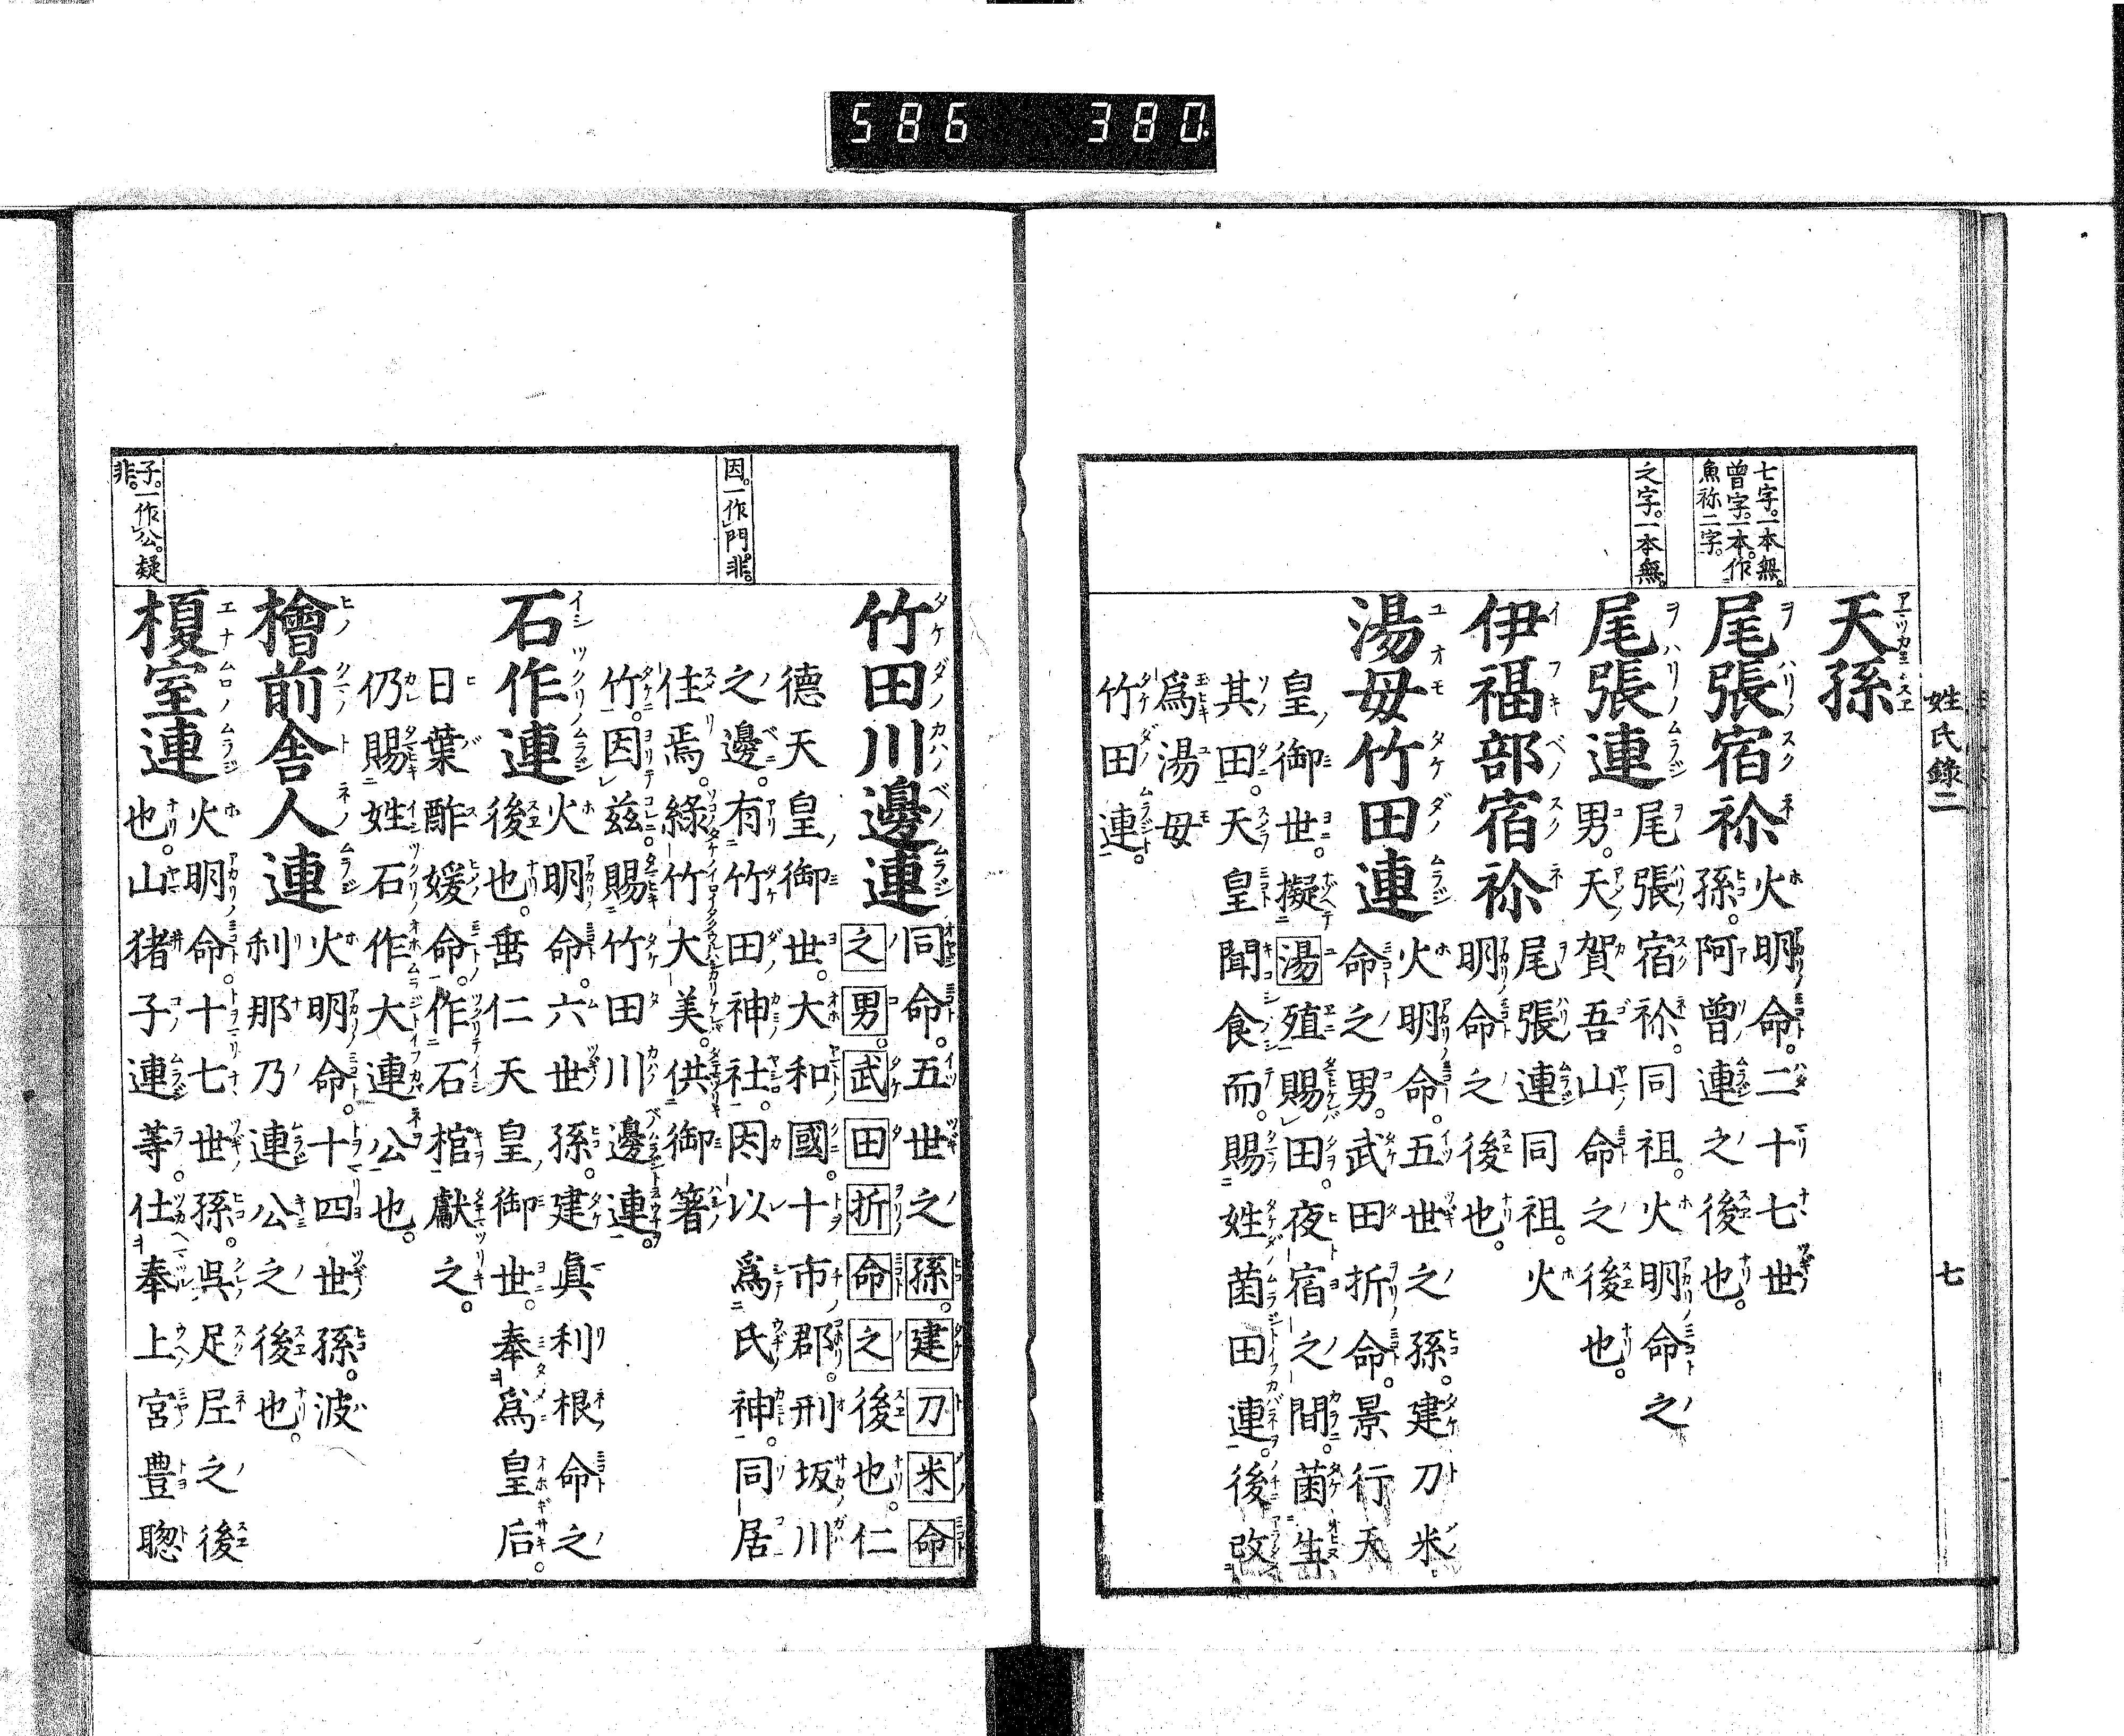 586 380
姓氏錄二 七
七字。一本無。
曾字。一本。作
魚祢二字。
之字。一本無。
天孫
尾張宿祢
火明命。二十七世
孫。阿曾連之後也。
尾張連
尾張宿祢。同祖。火明命之
男。天賀吾山命之後也。
伊福部宿祢
尾張連同祖。火
明命之後也。
湯母竹田連
火明命。五世之孫。建刀米。
命之男。武田折命。景行天
皇御世。擬湯殖賜田。夜宿之間。菌生
其田。天皇聞食而。賜姓菌田連。後改
爲湯母
竹田連。
因。一作門。非。
子。一作公。疑
非。
竹田川邊連
同命。五世之孫。建刀米命
之男。武田折命之後也。仁
德天皇御世。大和國十市郡。刑坂川
之邊。有竹田神社。因以爲氏神。同居
住焉。綠竹大美。供御箸
竹。因茲賜竹田川邊連。
石作連
火明命。六世孫。建眞利根命之
後也。垂仁天皇御世。奉爲皇后。
日葉酢媛命。作石棺獻之。
仍賜姓石作大連公也。
檜前舍人連
火明命。十四世孫。波
利那乃連公之後也。
榎室連
火明命。十七世孫。吳足尼之後
也。山猪子連等。仕奉上宮豊聰